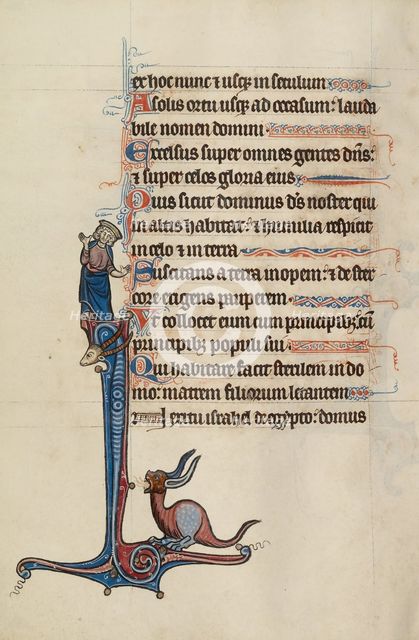 ex hoc nunc ⁊ usq; in seculum
A solis ortu usq; ad occasum: lauda
bile nomen domini
Excelsus super omnes gentes dn̄s:
⁊ super celos gloria eius
Quis sicut dominus d̄s noster qui
in altis habitat: ⁊ humilia respicit
in celo ⁊ in terra
Suscitans a terra inopem: ⁊ de ster
core erigens pauperem
Vt collocet eum cum principib;: cū
principib; populi sui
Qui habitare facit sterilem in do
mo: matrem filiorum letantem
In exitu israhel de egypto: domus